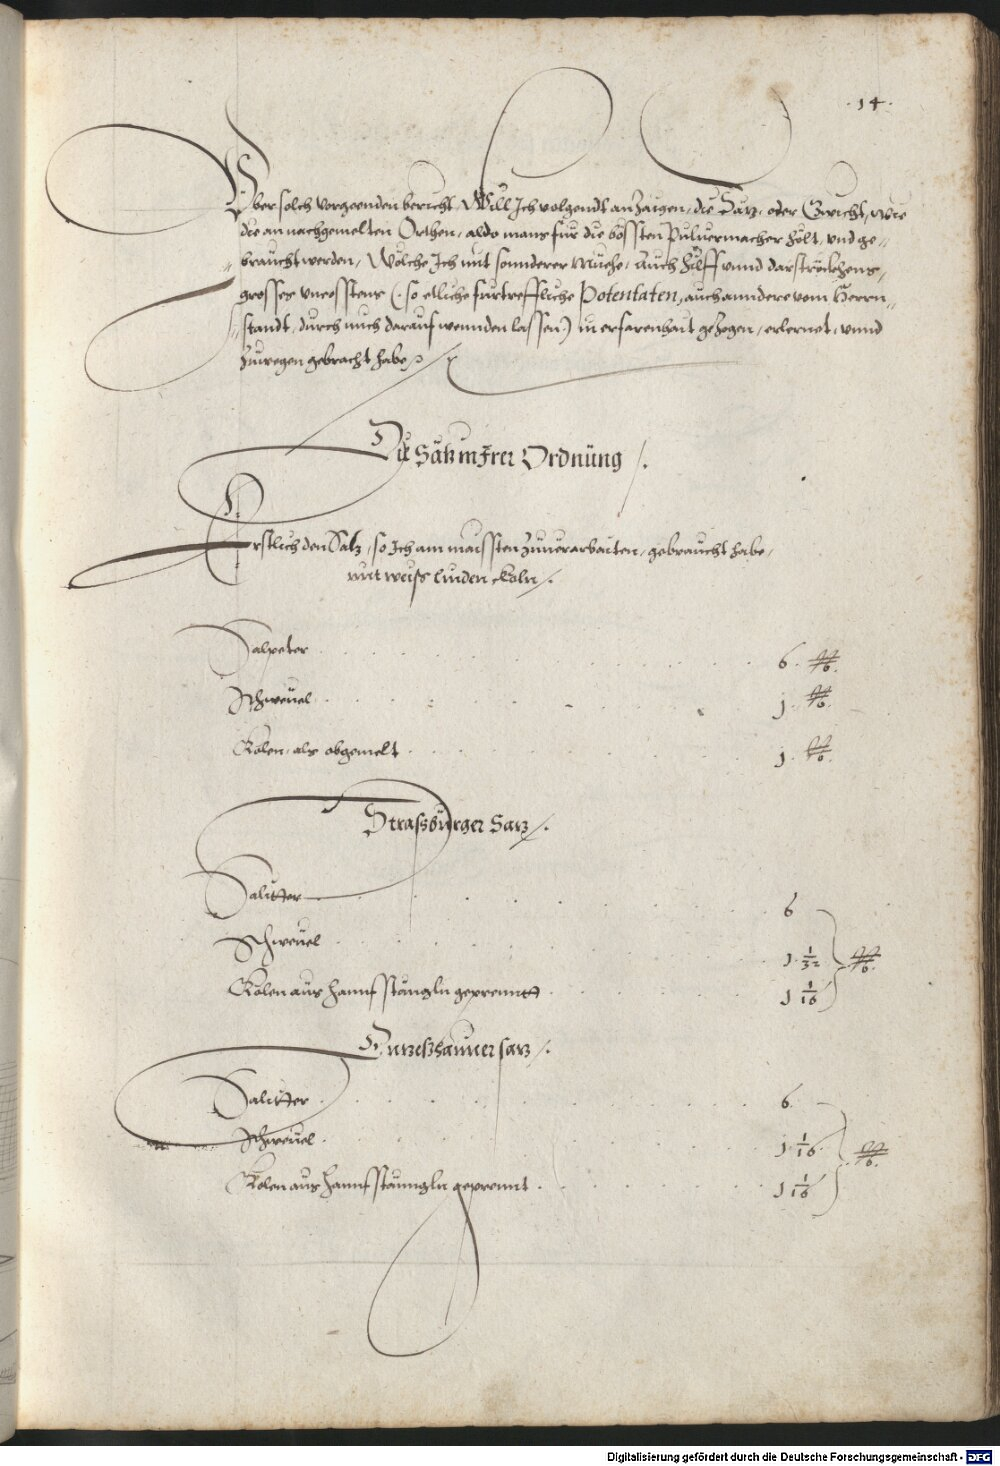 .14.
Vber solch vorgeenden bericht, Will Ich volgendt anzaigen, die Säz, oder Gwicht, wie
die an nachgemelten Orthen, aldo mans fur die bössten Puluermacher hölt, vnd ge-
braucht werden, Wölche Ich mit sonnderer müehe, auch hilff vnnd darströckhens,
grosses vncosstens (. so etliche furtreffliche Potentaten, auch anndere vom Herrn
standt, durch mich darauf wennden lassen) in erfarenhait gezogen, erlernet, vnnd
zuwegen gebracht habe
Die Säz in Irer Ordnüng /.
Erstlich den Satz, so Ich am maissten zuuerarbaiten, gebraucht habe,
mit weiss linden Koln /.
Salpeter . . . 6. ℔.
Schweuel . . . j. ℔.
Kolen, als obgemelt . . . j. ℔.
Strassbürger Saz /.
Salitter . . . 6
Schweuel . . . j. 1/32 ℔.
Kolen aus hannfstänngln geprennt . . . j 1/16
saz /.
Salitter . . . 6
Schweuel . . . j. 1/16 ℔.
Kolen aus hannfstänngln geprennt . . . j 1/16
Digitalisierung gefördert durch die Deutsche Forschungsgemeinschaft - DFG